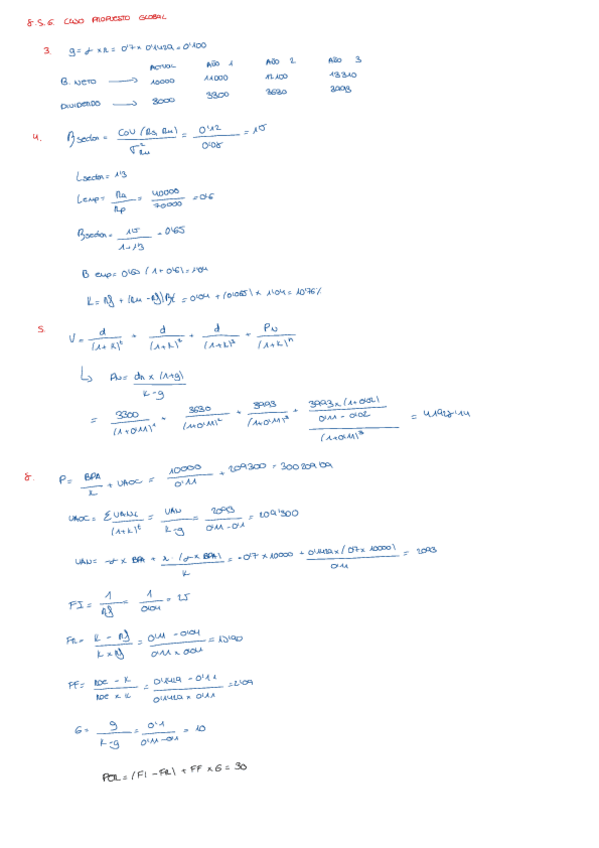 8.5.6. CASO PROPUESTO GLOBAL
3. g = γ × r = 0'7 × 0'1429 = 0'100
ACTUAL AÑO 1 AÑO 2 AÑO 3
B. NETO → 10000 11000 12100 13310
DIVIDENDO → 3000 3300 3630 3993
4. βsector = COV (Ra, Rm) / σ²Rm = 0'12 / 0'08 = 1'5
Lsector = 1'3
Lemp = Ra / Rp = 40000 / 70000 = 0'6
βsector = 1'5 / 1+1'3 = 0'65
β emp = 0'65 (1 + 0'6) = 1'04
K = Rf + (Rm - Rf) β = 0'04 + (0'065) × 1'04 = 10'76%
5. V = d / (1+k)¹ + d / (1+k)² + d / (1+k)³ + Pn / (1+k)ⁿ
↳ Pn = dn × (1+g) / k - g
= 3300 / (1+0'11)¹ + 3630 / (1+0'11)² + 3993 / (1+0'11)³ + 3993 × (1+0'02) / 0'11 - 0'02 / (1+0'11)³ = 41928'44
8. P = BPA / k + VAOC = 10000 / 0'11 + 209300 = 300209'09
VAOC = ΣVANt / (1+k)ᵗ = VAN / k-g = 2093 / 0'11 - 0'1 = 209'300
VAN = -γ × BPA + r · (γ × BPA) / k = -0'7 × 10000 + 0'1429 × (0'7 × 10000) / 0'11 = 2093
FI = 1 / Rf = 1 / 0'04 = 25
FR = k - Rf / k × Rf = 0'11 - 0'04 / 0'11 × 0'04 = 15'90
FF = ROE - k / ROE × k = 0'1429 - 0'11 / 0'1429 × 0'11 = 2'09
G = g / k-g = 0'1 / 0'11 - 0'1 = 10
PER = (FI - FR) + FF × G = 30